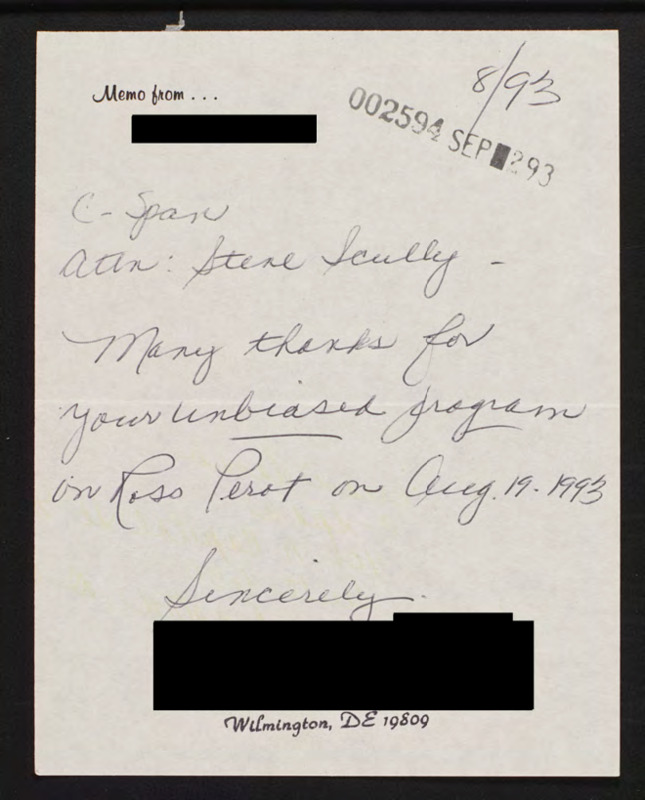 Memo from . . .
8/93
002594 SEP 293
C-Span
Attn: Steve Scully -
Many thanks for
your unbiased program
on Ross Perot on Aug. 19. 1993
Sincerely.
Wilmington, DE 19809